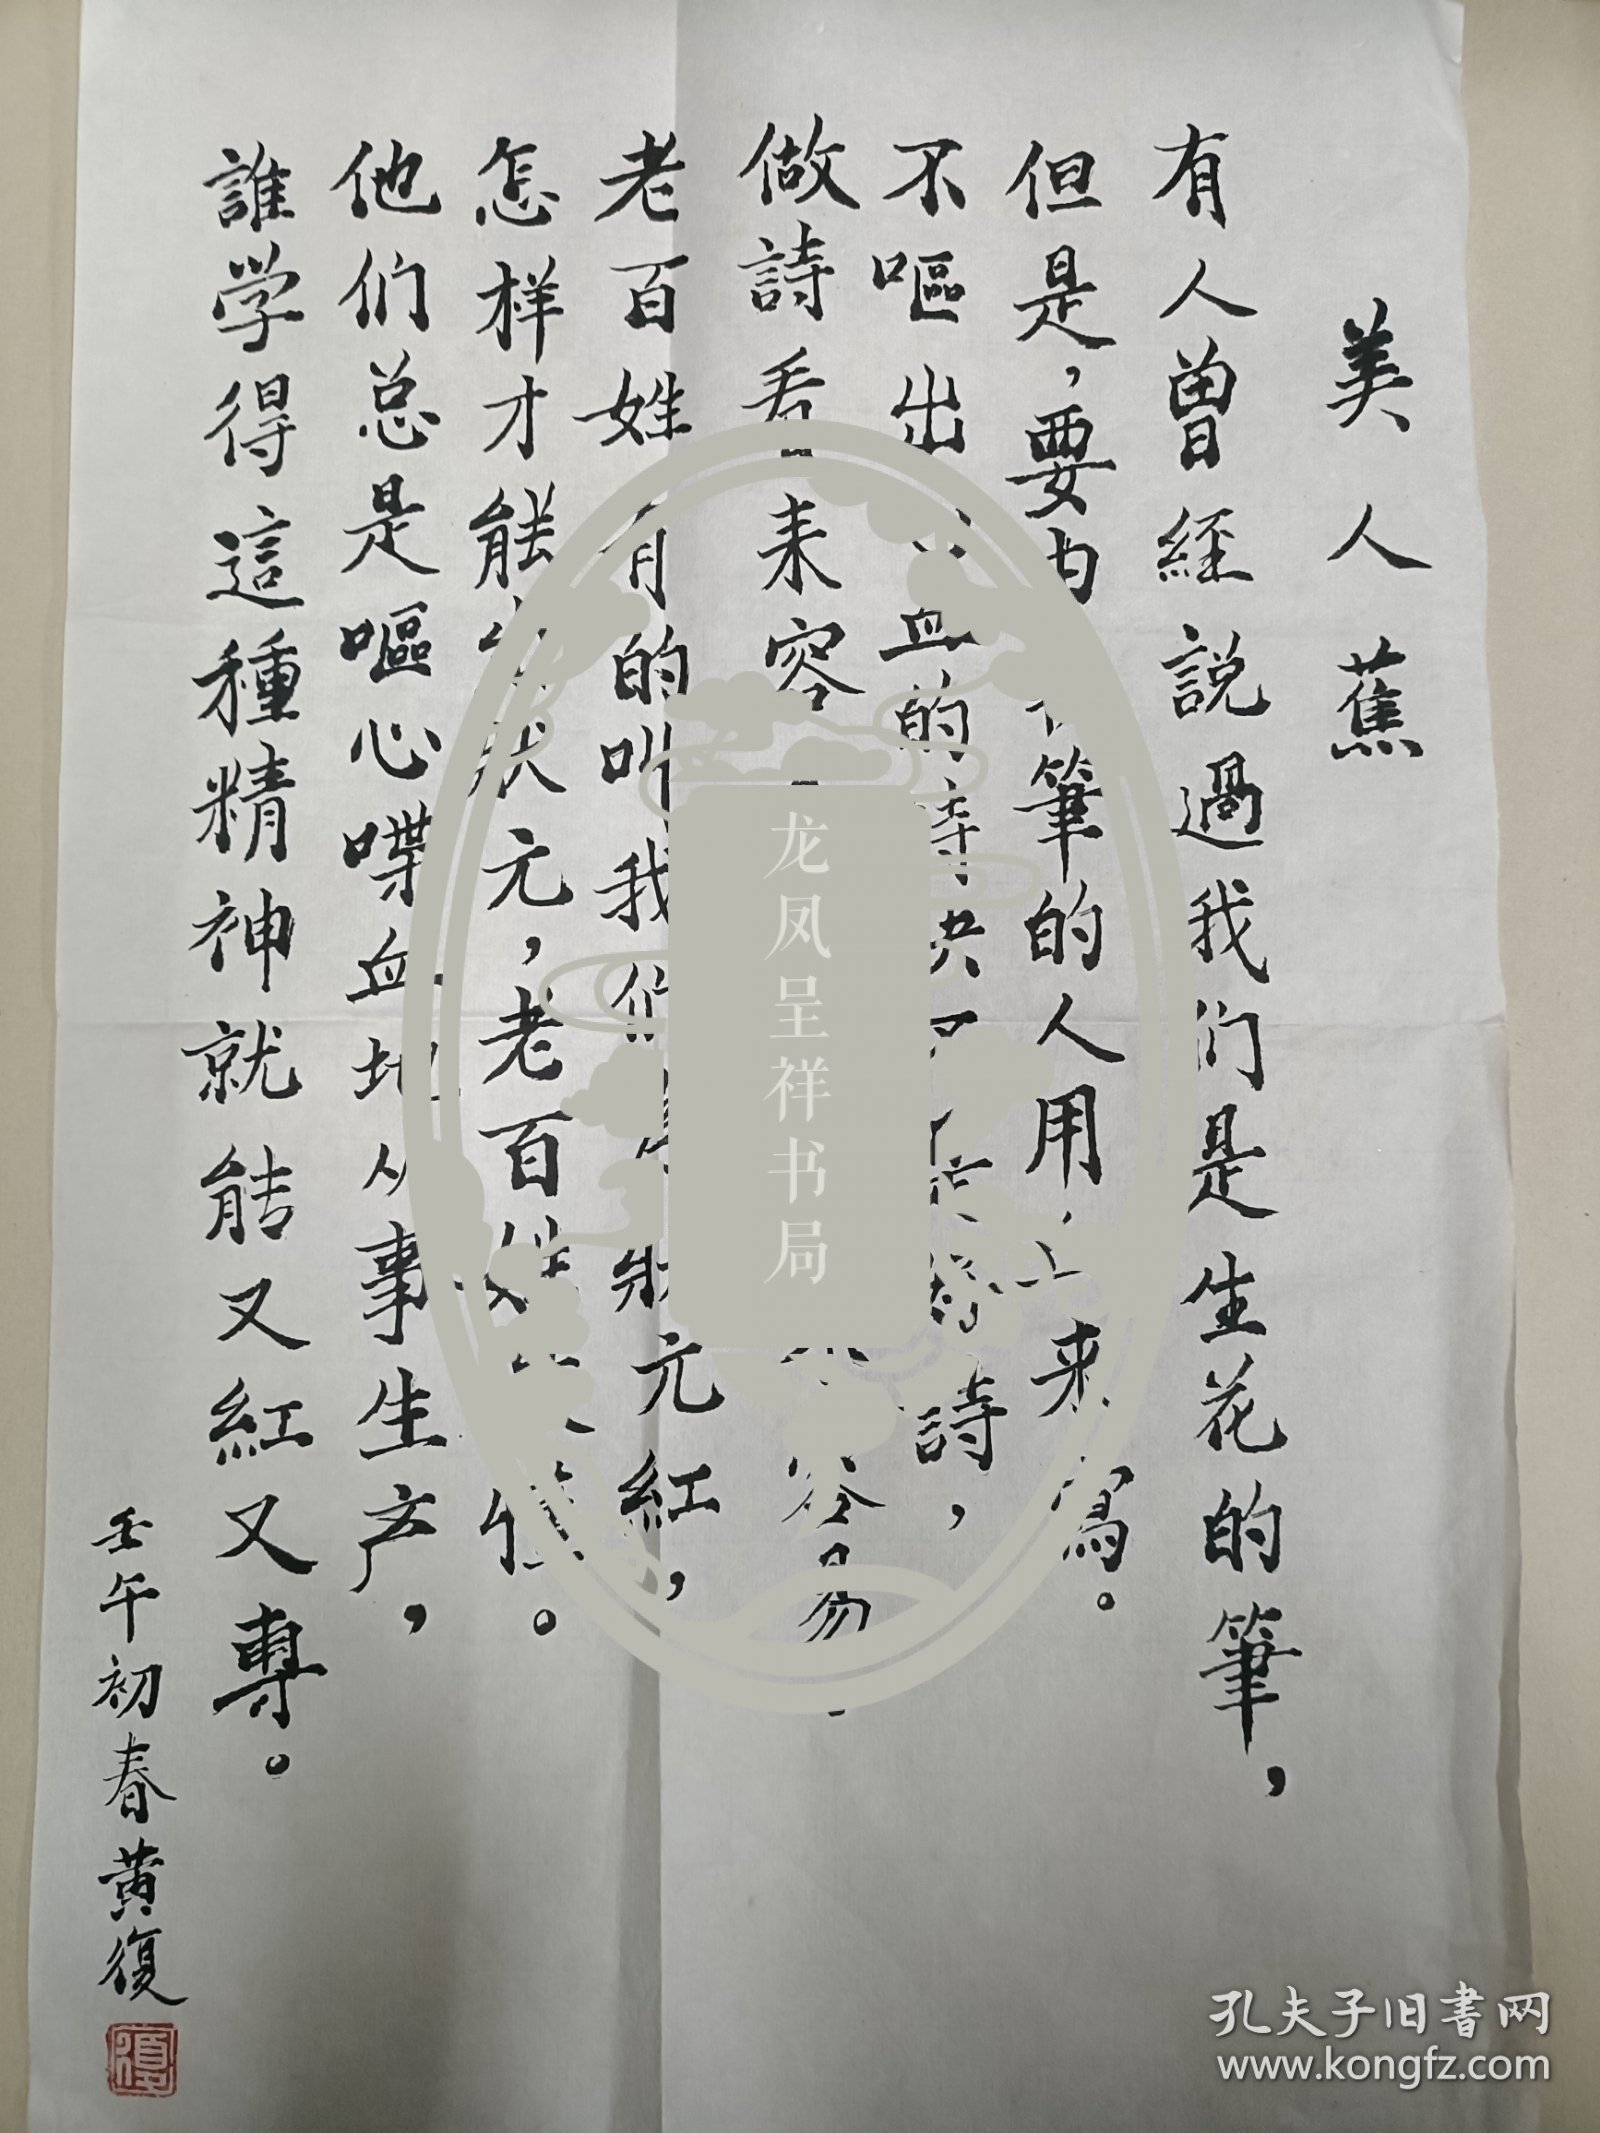 美人蕉
有人曾經説過我们是生花的筆，
但是，要由有筆的人用上来寫。
不嘔出心血的詩決不是好詩，
做詩看来容易不容易。
老百姓有的叫我们為狀元紅，
怎样才能当状元，老百姓是懂。
他们总是嘔心喋血地从事生产，
誰学得這種精神就能又紅又專。
壬午初春黄復
復
龙凤呈祥书局
孔夫子旧書网
www.kongfz.com